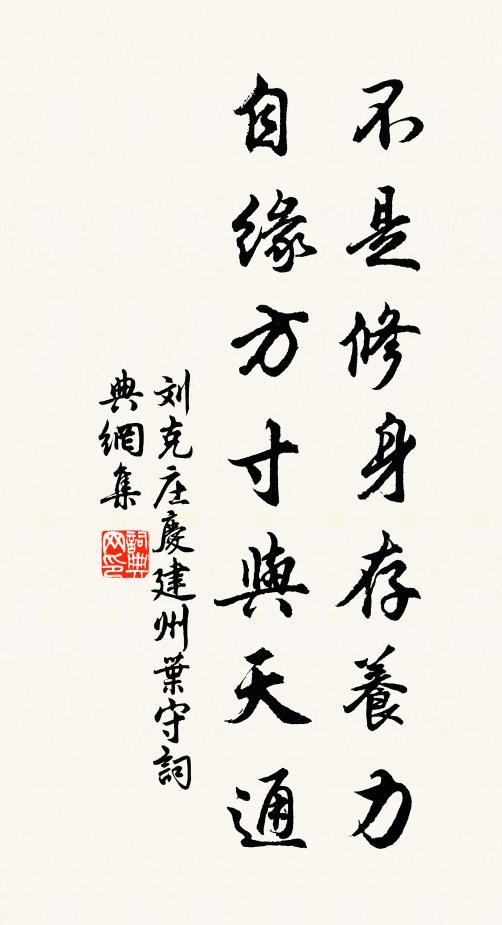 不是修身存養力
自緣方寸與天通
刘克庄慶建州葉守詞
典網集
詞典
网印